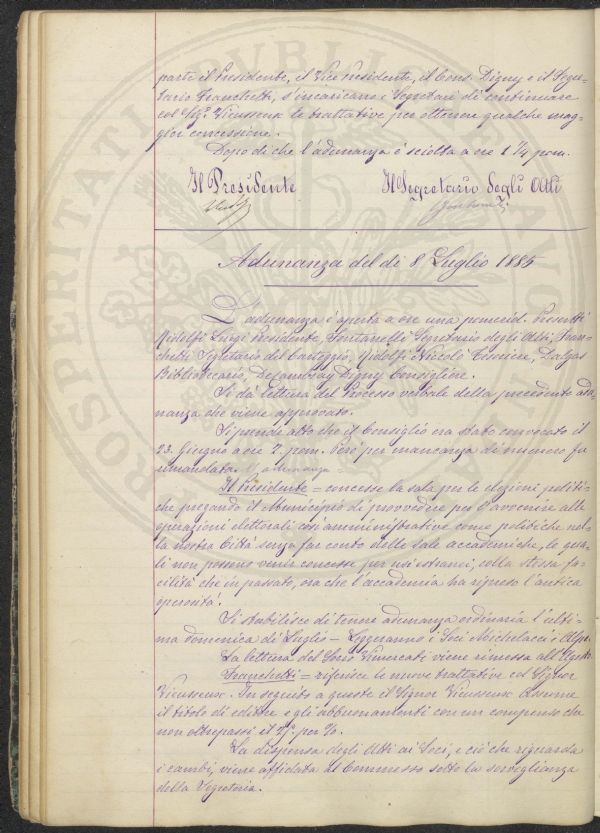 parte il Presidente, il Vice Presidente, il Cons. Digny e il Segre-
tario Franchetti, s'incaricano i Segretari di continuare
col Sigr. Vieusseux le trattative per ottenere qualche mag-
gior concessione.
Dopo di che l'adunanza è sciolta a ore 1 1/4 pom.
Il Presidente Il Segretario degli Atti
Adunanza del dì 8 Luglio 1885
L'adunanza è aperta a ore una pomerid. Presenti
Ridolfi Luigi Presidente, Fontanelli Segretario degli Atti, Fran-
chetti Segretario del Carteggio, Ridolfi Niccolò Tesoriere, Dalgas
Bibliotecario, DeCambray Digny Consigliere.
Si dà lettura del Processo verbale della precedente adu-
nanza che viene approvato.
Si prende atto che il Consiglio era stato convocato il
23. Giugno a ore 2. pom. Però per mancanza di numero fu
rimandata l'adunanza =
Il Presidente = concesse la sala per le elezioni politi-
che pregando il Municipio di provvedere per l'avvenire alle
operazioni elettorali così amministrative come politiche nel-
la nostra Città senza far conto delle sale accademiche, le qua-
li non possono venir concesse per usi estranei, colla stessa fa-
cilità che in passato, ora che l'accademia ha ripreso l'antica
operosità.
Si stabilisce di tenere adunanza ordinaria l'ulti-
ma domenica di Luglio – Leggeranno i Soci Michelacci e Alpe.
La lettura del Socio Vimercati viene rimessa all'Agosto.
Franchetti = riferisce le nuove trattative col Signor
Vieusseux. In seguito a queste il Signor Vieusseux assume
il titolo di editore e gli abbuonamenti con un compenso che
non oltrepassi il 25. per %.
La dispensa degli Atti ai Soci, e ciò che riguarda
i cambi, viene affidata al Commesso sotto la sorveglianza
della Segreteria.
PROSPERITATI PVBLICAE AVGENDAE